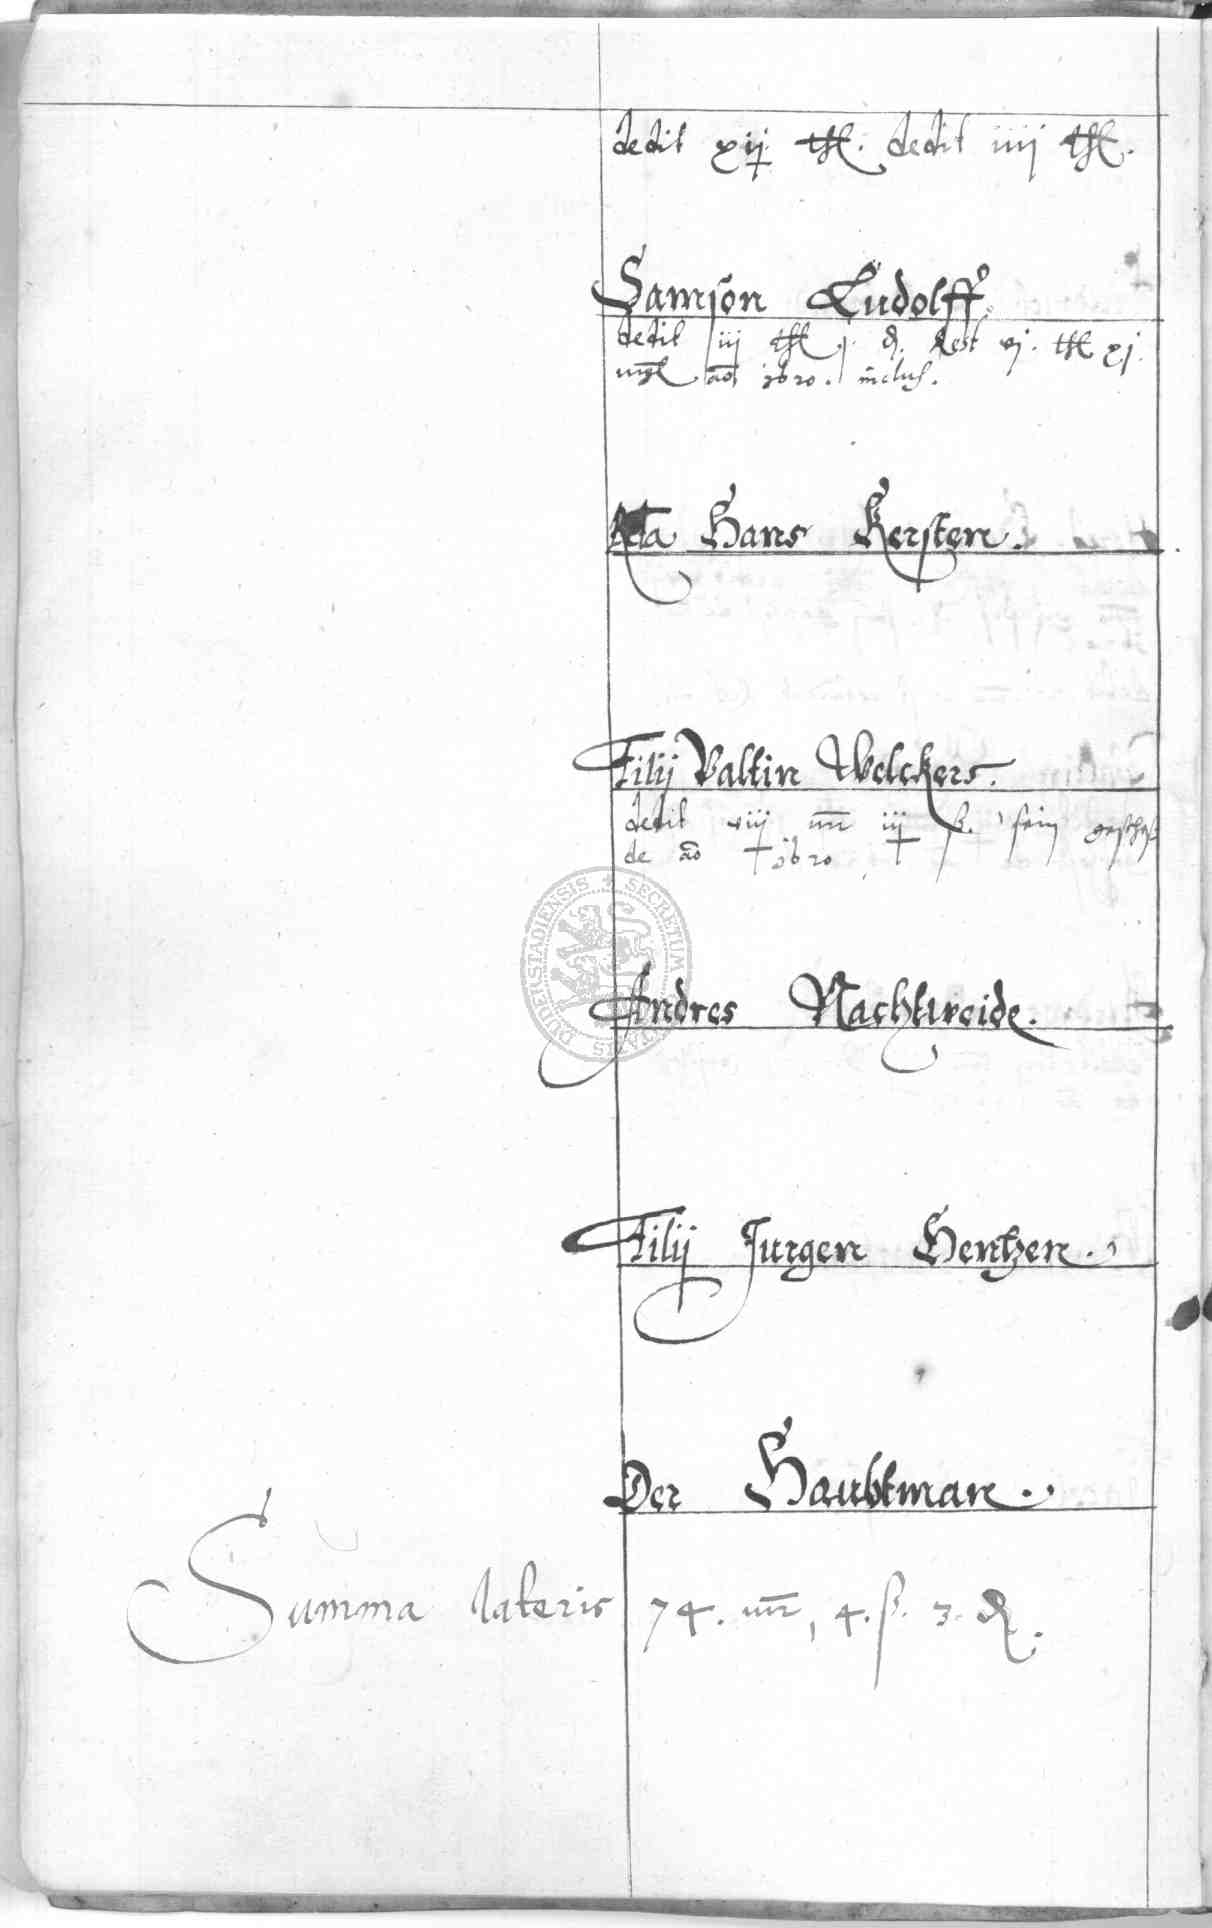 dedit xij thl. dedit iiij thl.
Samson Ludolff
dedit iij thl j. d. Rest vj. thl xj.
mgl ao 1620. inclus.
Hans Kersten.
Filij Valtin Welckers.
dedit viij mr iij ß. sein
de ao 1620
Andres Nachtweide.
Filij Jurgen Hentzen.
Der Haubtman.
Summa lateris 74. mr, 4. ß. 3. d.
SECRETUM DUDERSTADIENSIS